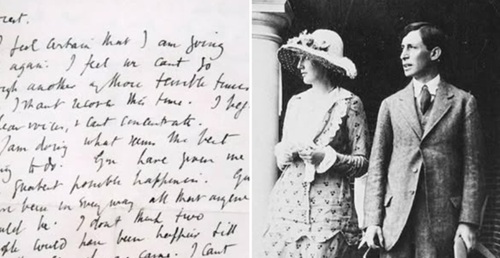 rest.
I feel certain that I am going
again. I feel we cant go
gh another of those terrible times
I shant recover this time. I beg
ear voices, & cant concentrate.
I am doing what seems the best
ng to do. You have given me
greatest possible happiness. You
been in every way all that anyone
uld be. I dont think two
ople would have been happier till
came. I cant